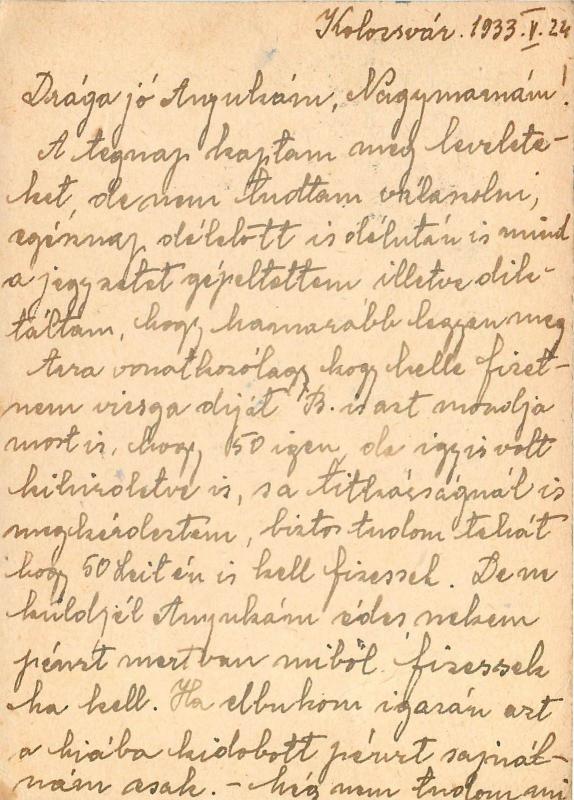 Kolozsvár. 1933. V. 24
Drága jó Anyukám, Nagymamám!
A tegnap kaptam meg levelete-
ket, de nem tudtam válaszolni,
egésznap délelött is délután is mind
a jegyzetet gépeltettem illetve dik-
táltam, hogy hamarább legyen meg
Arra vonatkozólag hogy kell e fizet-
nem vizsga díját B. is azt mondja
most is, hogy 50 igen, de igy is volt
kihirdetve is, s a titkárságnál is
megkérdeztem, biztos tudom tehát
hogy 50 leit én is kell fizessek. De ne
küldjél Anyukám édes nekem
pénzt mert van miböl fizessek
ha kell. Ha elbukom igazán azt
a hiába kidobott pénzt sajnál-
nám csak. – Még nem tudom mi